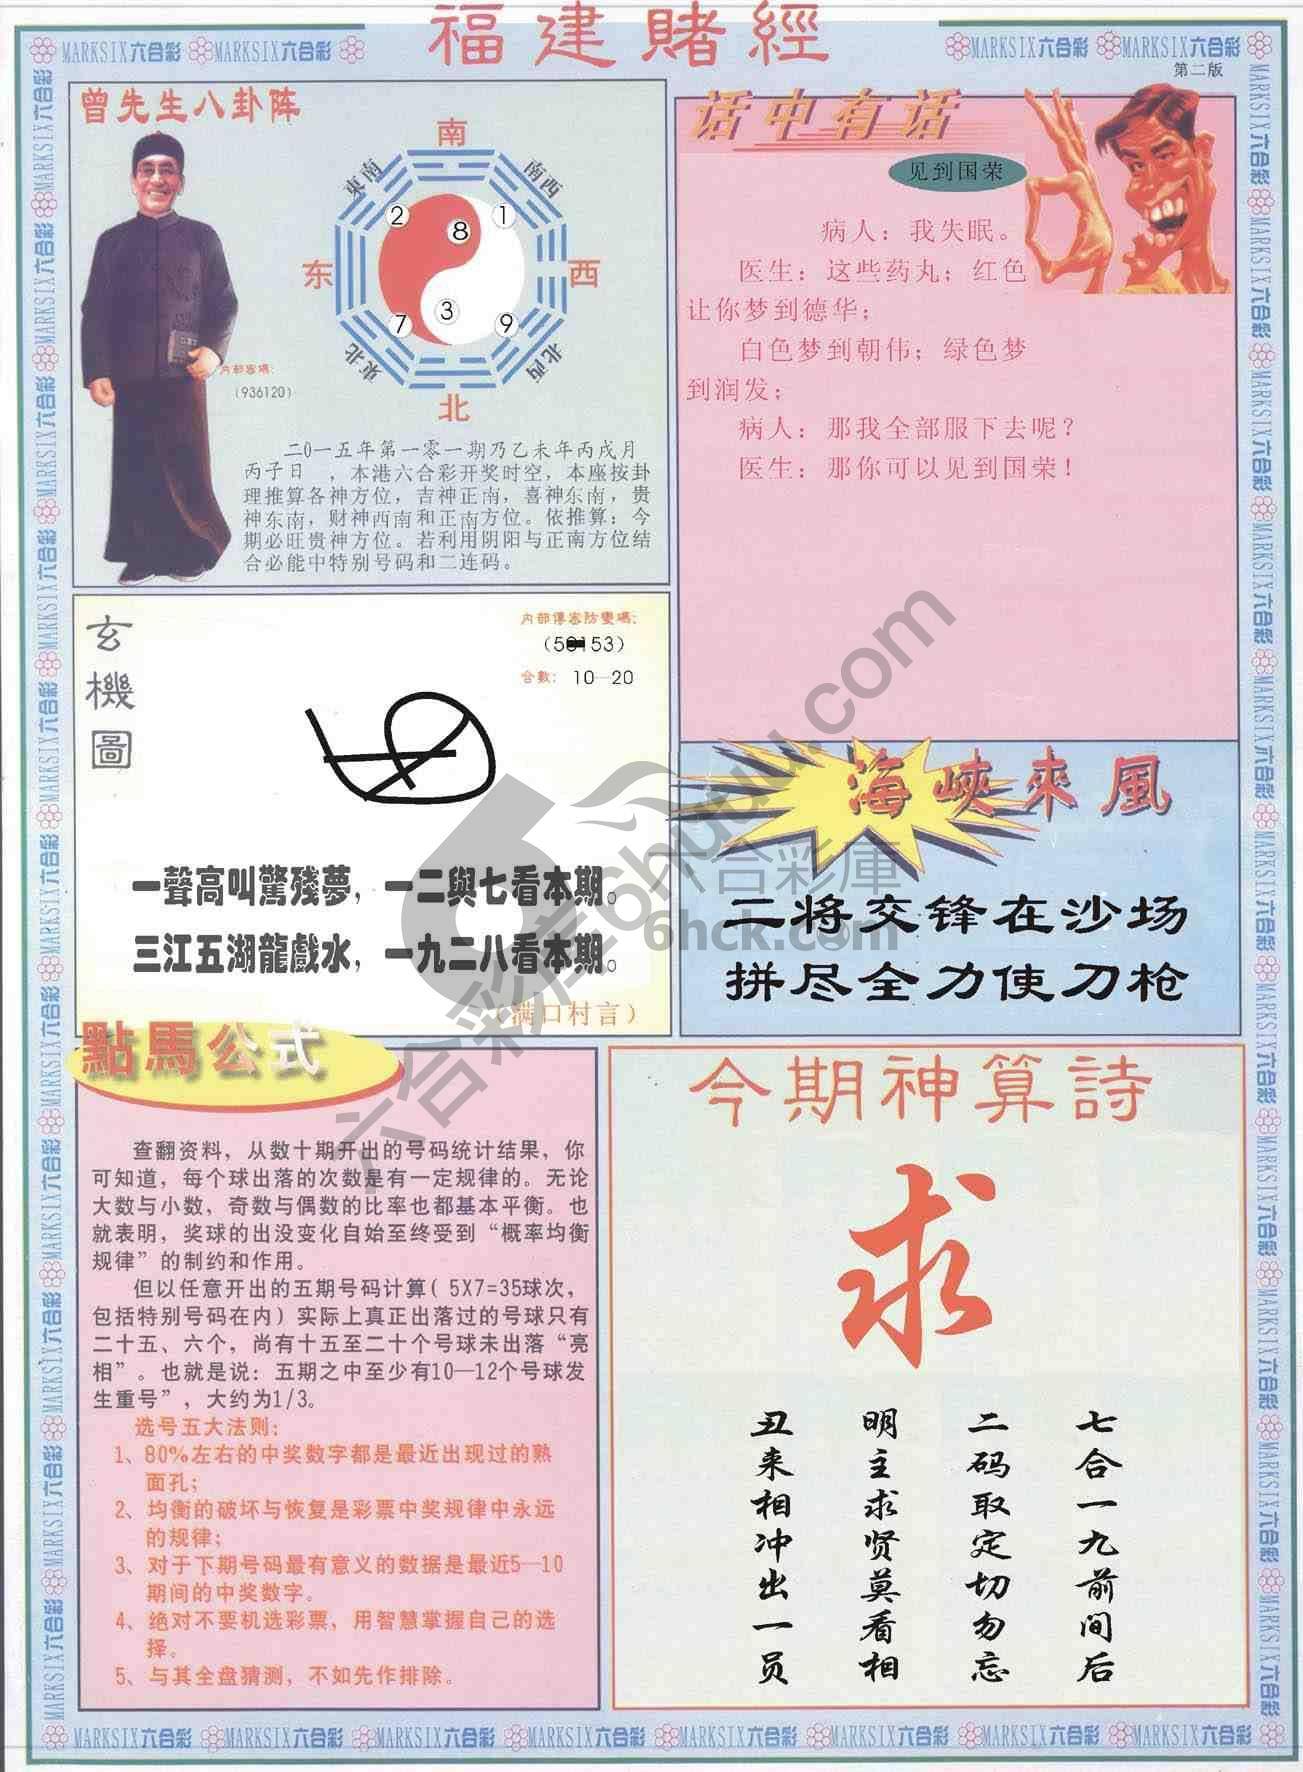 福建賭經
MARKSIX六合彩 MARKSIX六合彩
MARKSIX六合彩 MARKSIX六合彩
第二版
曾先生八卦阵
南
東南
南西
2
8
1
东
西
7
3
9
東北
北西
北
内部密碼:
(936120)
二0一五年第一零一期乃乙未年丙戌月
丙子日 ，本港六合彩开奖时空，本座按卦
理推算各神方位，吉神正南，喜神东南，贵
神东南，财神西南和正南方位。依推算：今
期必旺贵神方位。若利用阴阳与正南方位结
合必能中特别号码和二连码。
话中有话
见到国荣
病人：我失眠。
医生：这些药丸；红色
让你梦到德华；
白色梦到朝伟；绿色梦
到润发；
病人：那我全部服下去呢？
医生：那你可以见到国荣！
玄機圖
内部傳密防變碼:
合數: 10—20
一聲高叫驚殘夢，一二與七看本期。
三江五湖龍戲水，一九二八看本期。
（满口村言）
海峽來風
二将交锋在沙场
拼尽全力使刀枪
六合彩庫
6hck.com
點馬公式
查翻资料，从数十期开出的号码统计结果，你
可知道，每个球出落的次数是有一定规律的。无论
大数与小数，奇数与偶数的比率也都基本平衡。也
就表明，奖球的出没变化自始至终受到“概率均衡
规律”的制约和作用。
但以任意开出的五期号码计算( 5X7=35球次，
包括特别号码在内）实际上真正出落过的号球只有
二十五、六个，尚有十五至二十个号球未出落“亮
相”。也就是说：五期之中至少有10—12个号球发
生重号”，大约为1/3。
选号五大法则：
1、80%左右的中奖数字都是最近出现过的熟
面孔；
2、均衡的破坏与恢复是彩票中奖规律中永远
的规律；
3、对于下期号码最有意义的数据是最近5—10
期间的中奖数字。
4、绝对不要机选彩票，用智慧掌握自己的选
择。
5、与其全盘猜测，不如先作排除。
今期神算詩
求
七合一九前间后
二码取定切勿忘
明主求贤莫看相
丑来相冲出一员
MARKSIX六合彩 MARKSIX六合彩 MARKSIX六合彩 MARKSIX六合彩 MARKSIX六合彩 MARKSIX六合彩 MARKSIX六合彩 MARKSIX六合彩